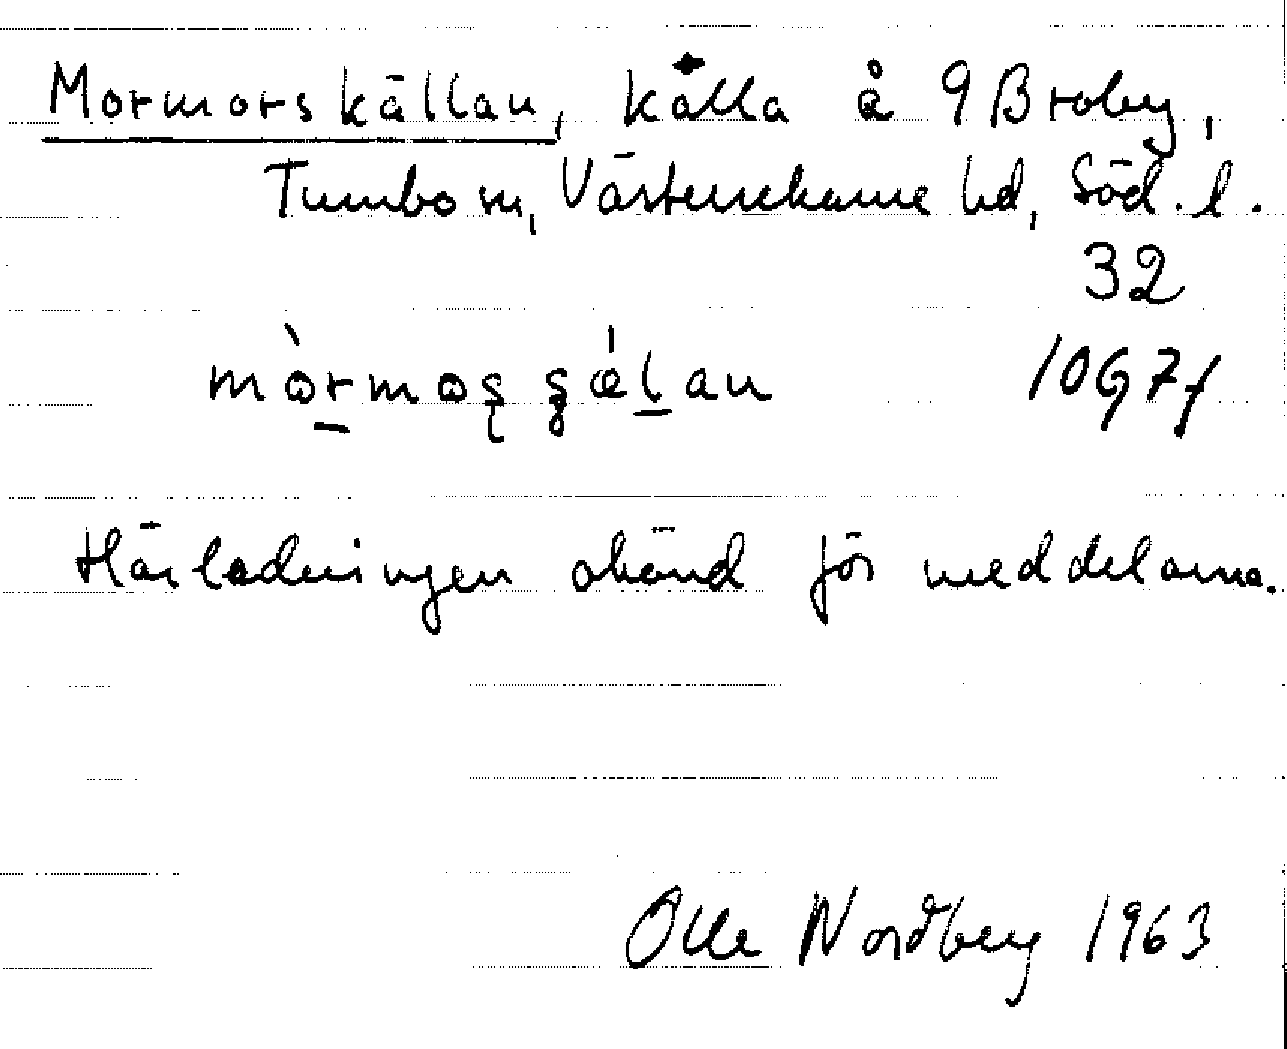 Mormorskällan, källa å 9 Broby,
Tumbo sn, Västerrekarne hd, Söd. l.
32
mòrmoş şælan
10G7f
Härledningen okänd för meddelarna.
Olle Nordberg 1963